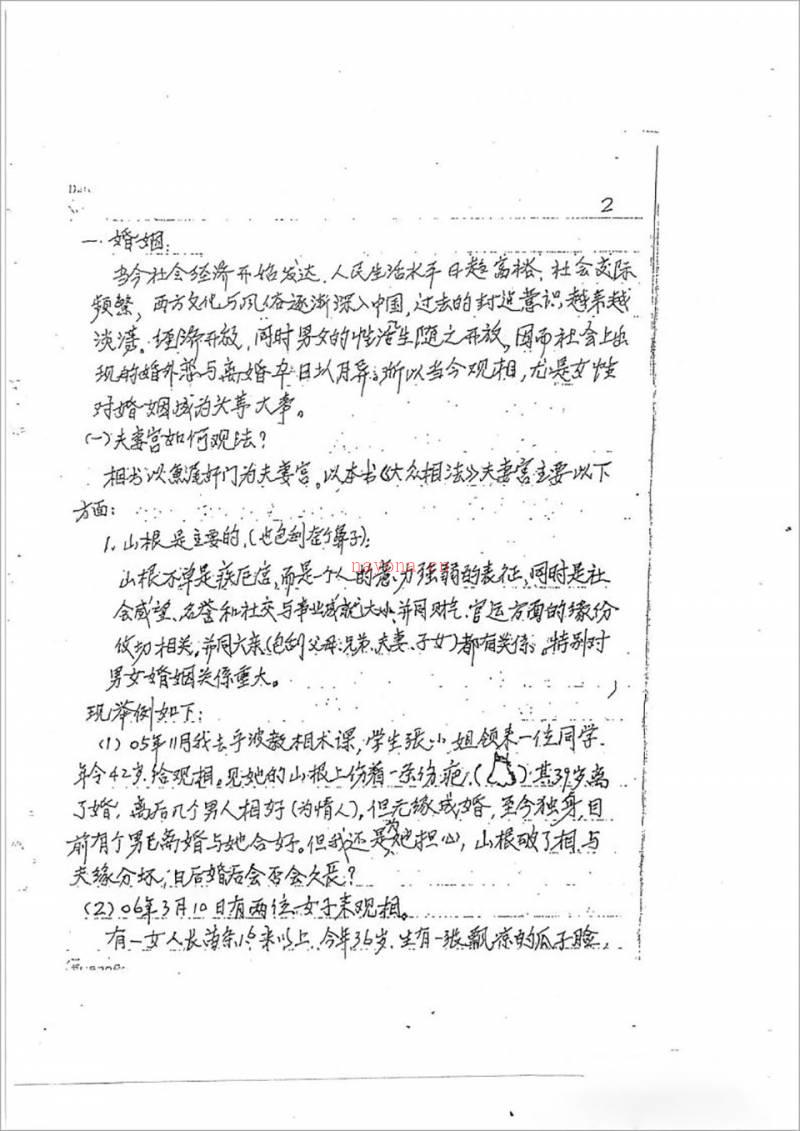 2
一、婚姻:
当今社会经济开始发达、人民生活水平日趋富裕、社会交际
频繁，西方文化与风俗逐渐深入中国，过去的封建意识越来越
淡薄。经济开放，同时男女的性活生随之开放，因而社会上出
现的婚外恋与离婚率日以月异，所以当今观相，尤是女性
对婚姻成为头等大事。
(一)夫妻宫如何观法？
相书以鱼尾奸门为夫妻宫。以本书《大众相法》夫妻宫主要以下
方面:
1. 山根是主要的，(也包刮整个鼻子):
山根不单是疾厄宫，而是一个人的意力强弱的表征，同时是社
会威望、名誉和社交与事业成就大小，并同财气、官运方面的缘份
攸切相关，并同六亲(包刮父母、兄弟、夫妻、子女)都有关係。特别对
男女婚姻关係重大。
现举例如下:
(1) 05年11月我去宁波教相术课，学生张小姐领来一位同学，
年令42岁给观相。见她的山根上伤着一条伤疤，( )其39岁离
了婚，离后几个男人相好(为情人)。但无缘成婚，至今独身，目
前有个男已离婚与她合好。但我还是为她担心，山根破了相，与
夫缘分坏，日后婚后会否会久长？
(2) 06年3月10日有两位女子来观相。
有一女人长苗条1.6米以上，今年36岁，生有一张飘凉的瓜子脸，
navona.cn